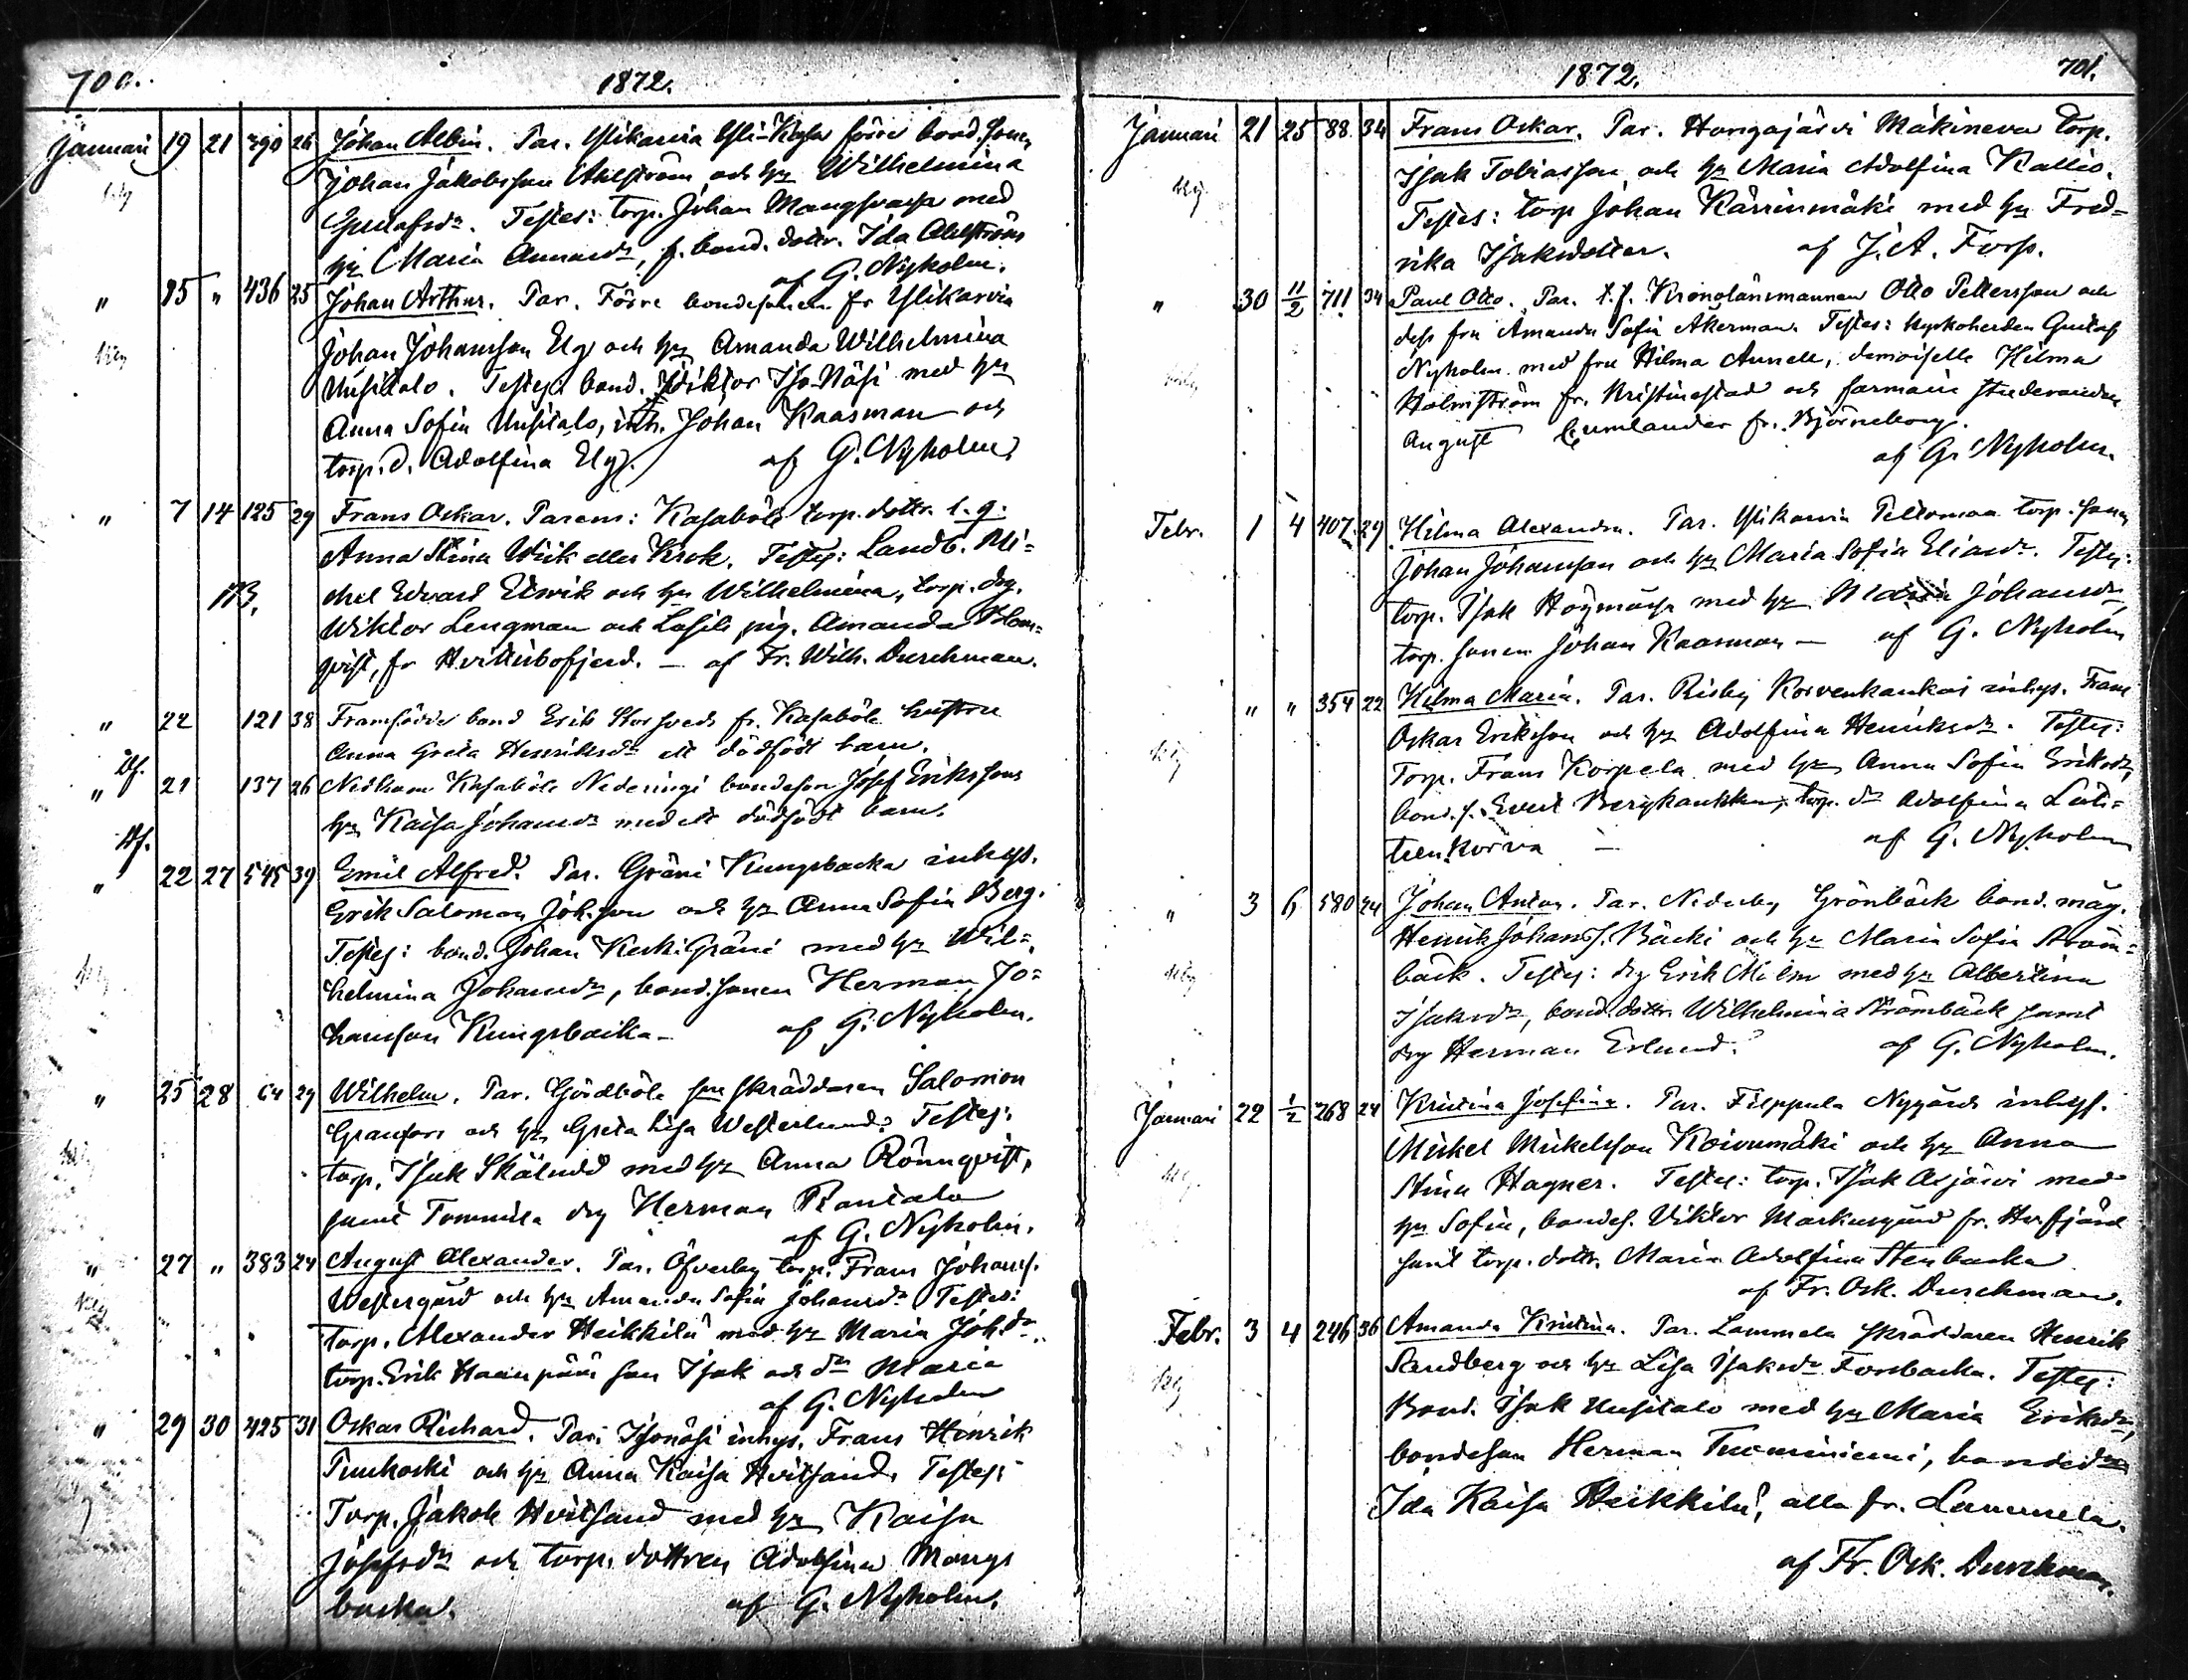 700. 1872.
Januari 19 21 390 26 Johan Albin. Par. Ylikarvia Yli-Kasa förre bond. son
Johan Jakobsson Ahlström och h:u Wilhelmina
Gustafsd:r. Testes: torp. Johan Mangs med
h:u Maria, f. bond. dottr. Ida Ahlströms
af G. Nyholm.
" 15 " 436 25 Johan Arthur. Par. Förre bondesonen fr Ylikarvia
Johan Johansson Elg och h:u Amanda Wilhelmina
Uusitalo. Testes: bond. Wiktor Iso-Näsi med h:u
Anna Sofia Uusitalo, inh. Johan Kaasman och
torp. d. Adolfina Elg. af G. Nyholm.
" 7 14 125 29 Frans Oskar. Parens: Kasaböle torp. dottr. l. q.
Anna Stina Wiik eller Krok. Testes: Landb. Mi-
chel Edvard och h:u Wilhelmina, torp. drg.
Wiktor Lengman och pig. Amanda Blom-
qvist, fr Hvittisbofjerd. — af Fr. Wilh. Durchman.
" 22 121 38 Framfödde bond Erik Storsveds fr. Kasaböle hustru
Anna Greta Henriksd:r ett dödfödt barn.
Df.
" 21 137 26 Nedkom Kasaböle bondeson Josef Erikssons
h:u Kaisa Johansd:r med ett dödfödt barn.
Df.
" 22 27 545 39 Emil Alfred. Par. Gräni Kungsbacka inhys.
Erik Salomon Joh.son och h:u Anna Sofia Berg.
Testes: bond. Johan Keski-Gräni med h:u Wil-
helmina Johansd:r, bond. sonen Herman Jo-
hansson Kungsbacka — af G. Nyholm.
" 25 28 64 29 Wilhelm. Par. Gårdböle skräddaren Salomon
Granfors och h:u Greta Lisa Westerlund. Testes:
torp. Isak med h:u Anna Rönnqvist,
samt Tommila drg Herman Rantala
af G. Nyholm.
" 27 " 383 24 August Alexander. Par. Öfverby torp. Frans Johans s.
Westergård och h:u Amanda Sofia Johansd:r Testes:
torp. Alexander Heikkilä med h:u Maria Joh.d:r
torp. Erik Haanpää son Isak och d:r Maria
af G. Nyholm
" 29 30 425 31 Oskar Richard. Par. Isonäsi inhys. Frans Henrik
Tuuhoski och h:u Anna Kaisa Hvitsand. Testes:
Torp. Jakob Hvitsand med h:u Kaisa
Josefsd:r och torp. dottren Adolfina Mangs
backa. af G. Nyholm.
1872. 701.
Januari 21 25 88 34 Frans Oskar. Par. Hongajärvi Mäkineva torp.
Isak Tobiasson och h:u Maria Adolfina Kallio.
Testes: torp Johan Kärrinmäki med h:u Fred-
rika Isaksdotter. af J. A. Forss.
" 30 11/2 711 34 Paul Otto. Par. t. f. Kronolänsmannen Otto Pettersson och
dess fru Amanda Sofia Åkerman. Testes: kyrkoherden Gustaf
Nyholm med fru Hilma Aurell, demoiselle Hilma
Holmström fr. Kristinestad och farmacie studeranden
August Cumlander fr. Björneborg.
af G. Nyholm.
Febr. 1 4 407 29 Hilma Alexandra. Par. Ylikarvia Peltomaa torp. son
Johan Johansson och h:u Maria Sofia Eliasd:r. Testes:
torp. Isak med h:u Maria Johansd:r
torp. sonen Johan Kaasman — af G. Nyholm
" " 354 22 Hilma Maria. Par. Risby Korvenkaukas inhys. Frans
Oskar Eriksson och h:u Adolfina Henriksd:r. Testes:
Torp. Frans Korpela med h:u Anna Sofia Eriksd:r,
bond. s. Evert, torp. d:r Adolfina
korva — af G. Nyholm
" 3 6 580 24 Johan Anton. Par. Nederby Grönbäck bond. måg.
Henrik Johans s. Bäcki och h:u Maria Sofia Ström-
bäck. Testes: drg Erik Milm med h:u Albertina
Isaksd:r, bond. dottr. Wilhelmina Strömbäck samt
drg Herman Erlund. af G. Nyholm.
Januari 22 1/2 268 24 Kristina Josefina. Par. Filppula Nygårds inhys.
Mickel Mickelsson Koivumäki och h:u Anna
Stina Hagner. Testes: torp. Isak Asjärvi med
h:u Sofia, bondes. Viktor Markusgård fr. Hv.fjärd
samt torp. dottr. Maria Adolfina Stenbacka
af Fr. Osk. Durchman.
Febr. 3 4 246 36 Amanda Kristina. Par. Lammela skräddaren Henrik
Sandberg och h:u Lisa Isaksd:r Forsbacka. Testes:
Bond. Isak Uusitalo med h:u Maria Eriksd:r,
bondeson Herman Tuominiemi, bonded:r
Ida Kaisa Heikkilä, alla fr. Lammela.
af Fr. Osk. Durchman.